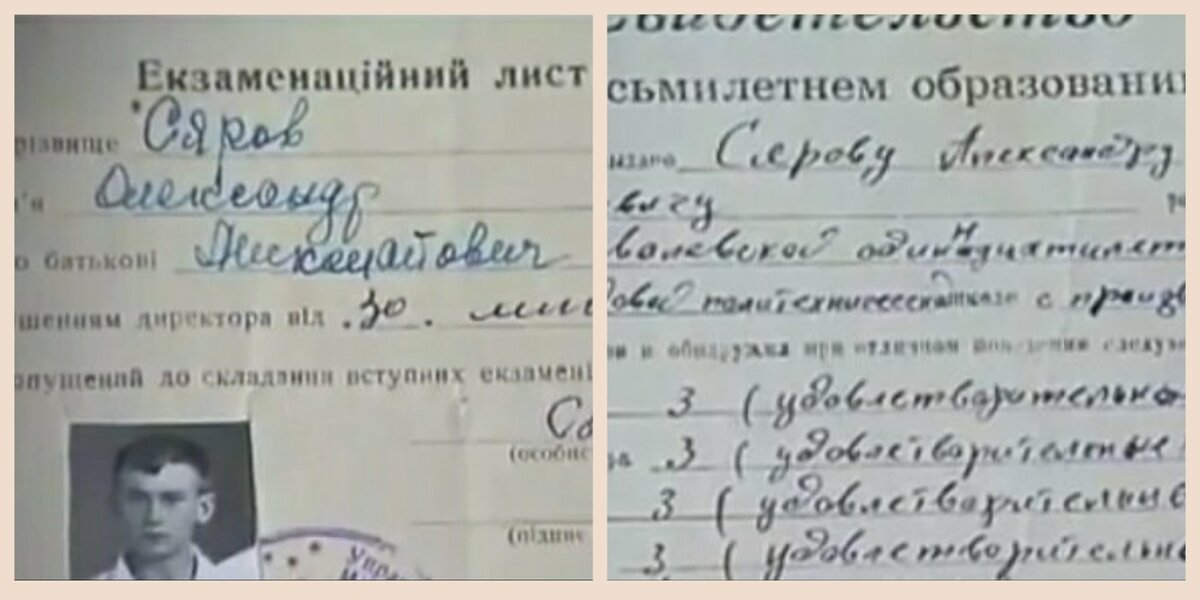 Екзаменаційний лист
різвище Сяров
Олександр
о батькові Николайович
шенням директора від .30.
опущений до складання вступних екзамені
Со
(особис
(підпис
Упра
Свидетельство
сьмилетнем образовании
Серову Александру
вичу
одиннадцатилет
политехнической школе с производ
и обнаружил при отличном поведении следую
3 (удовлетворительно
за 3 (удовлетворительные
3 (удовлетворительно
3 (удовлетворительно